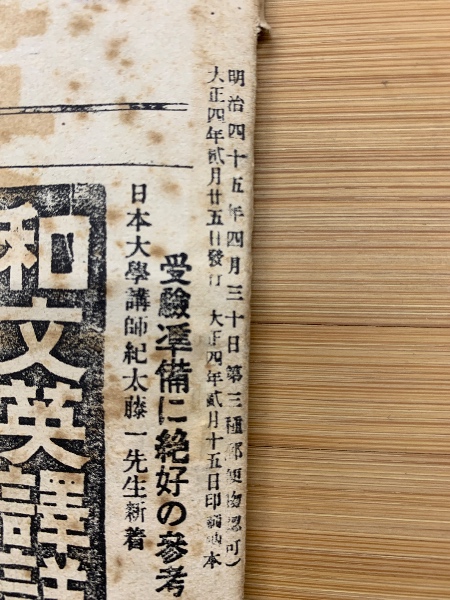 明治四十五年四月三十日第三種郵便物認可)
大正四年貳月廿五日發行 大正四年貳月十五日印刷納本
受驗準備に絶好の參考
日本大學講師紀太藤一先生新着
和文英譯詳